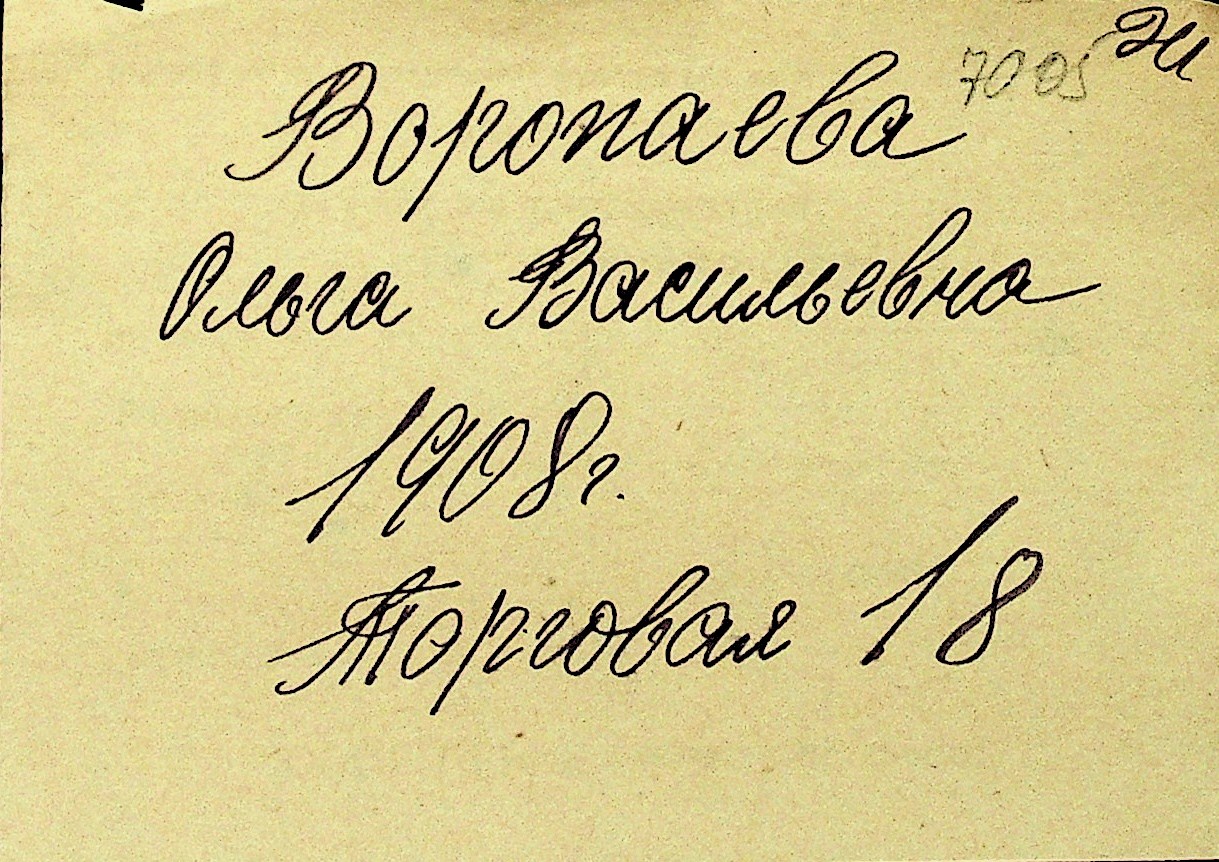 Воропаева
Ольга Васильевна
1908 г.
Торговая 18